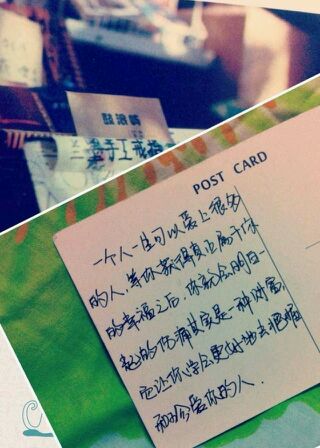 鼓浪屿
手工戒指
POST CARD
一个人一生可以爱上很多
的人,等你获得真正属于你
的幸福之后,你就会明白一
起的伤痛其实是一种财富,
它让你学会更好地去把握
和爱你的人.